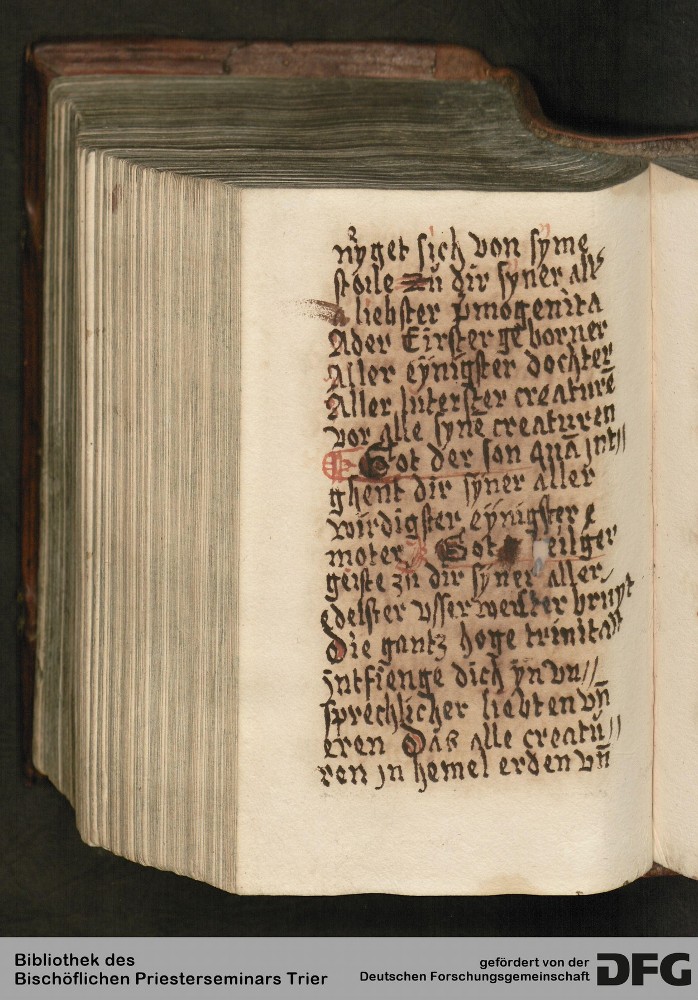 nyget sich von syme
stoile zu dir syner all
liebster p̄mogenita
Ader Eirster geborner
Aller eynigster dochter
Aller luterster creaturē
vor alle synē creaturen
Got der son quā jnt//
ghent dir syner aller
wirdigster eynigster
moter Got heilger
geiste zu dir syner aller
edelster vsserwelster bruyt
Die gantz hoge trinitatt
jntfienge dich yn vn//
sprechlicher liebten vn̄
eren Das alle creatu//
ren jn hemel erden vn̄
Bibliothek des
Bischöflichen Priesterseminars Trier
gefördert von der
Deutschen Forschungsgemeinschaft
DFG